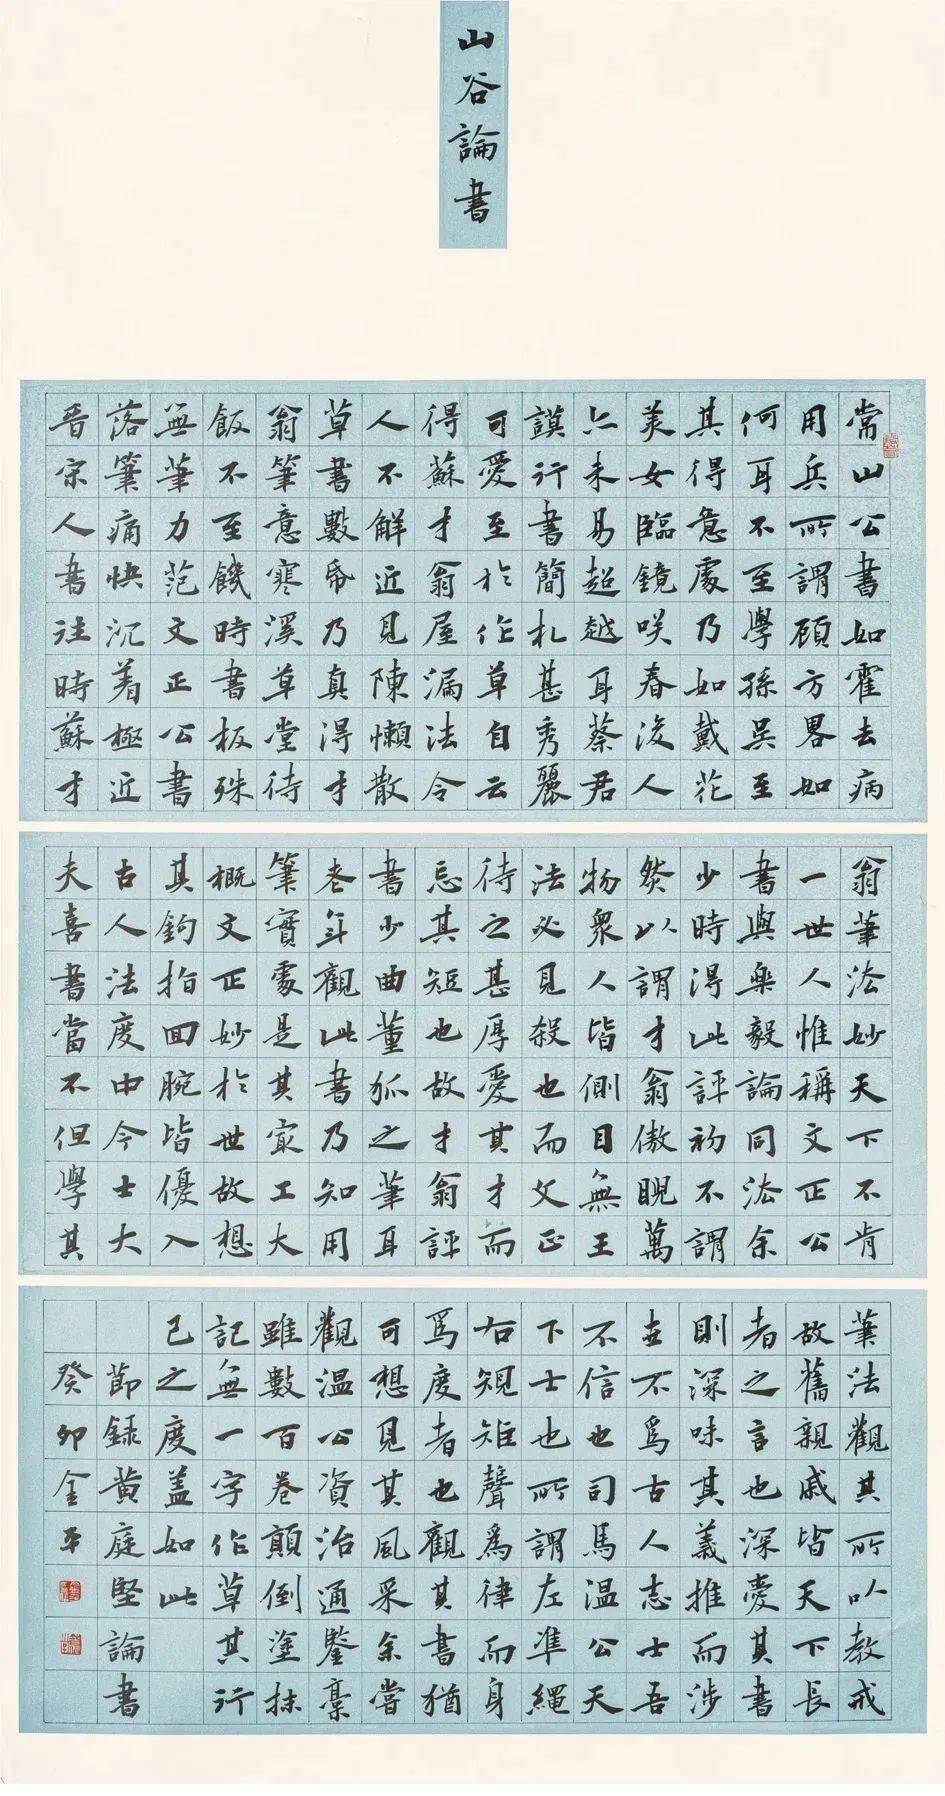 山谷論書
常山公書如霍去病
用兵所謂顧方畧如
何耳不至學孫吳至
其得意處乃如戴花
美女臨鏡咲春後人
亦未易超越耳蔡君
謨行書簡札甚秀麗
可愛至於作草自云
得蘇才翁屋漏法令
人不解近見陳懶散
草書數㡌乃真得才
翁筆意寒溪草堂待
飯不至饑時書板殊
無筆力范文正公書
落筆痛快沉着極近
晉宋人書往時蘇才
翁筆法妙天下不肯
一世人惟稱文正公
書與樂毅論同法余
少時得此評初不謂
然以謂才翁傲睨萬
物衆人皆側目無王
法必見殺也而文正
待之甚厚愛其才而
忘其短也故才翁評
書少曲董狐之筆耳
老年觀此書乃知用
筆實處是其㝡工大
概文正妙於世故想
其鉤指回腕皆優入
古人法度中今士大
夫喜書當不但學其
筆法觀其所以教戒
故舊親戚皆天下長
者之言也深愛其書
則深味其義推而涉
世不為古人志士吾
不信也司馬溫公天
下士也所謂左準繩
右規矩聲為律而身
為度者也觀其書猶
可想見其風采余嘗
觀溫公資治通鑒稾
雖數百卷顛倒塗抹
記無一字作草其行
己之度蓋如此
節録黃庭堅論書
癸卯金平